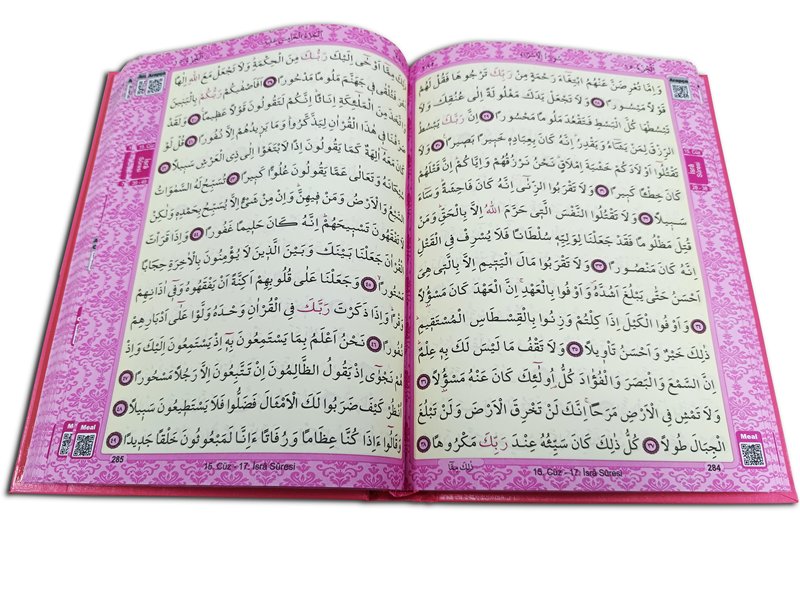 وَاِمَّا تُعْرِضَنَّ عَنْهُمُ ابْتِغَٓاءَ رَحْمَةٍ مِنْ رَبِّكَ تَرْجُوهَا فَقُلْ لَهُمْ
قَوْلًا مَيْسُورًا ٢٨ وَلَا تَجْعَلْ يَدَكَ مَغْلُولَةً اِلٰى عُنُقِكَ وَلَا
تَبْسُطْهَا كُلَّ الْبَسْطِ فَتَقْعُدَ مَلُومًا مَحْسُورًا ٢٩ اِنَّ رَبَّكَ يَبْسُطُ
الرِّزْقَ لِمَنْ يَشَٓاءُ وَيَقْدِرُ اِنَّهُ كَانَ بِعِبَادِه۪ خَب۪يرًا بَص۪يرًا ٣٠
وَلَا تَقْتُلُٓوا اَوْلَادَكُمْ خَشْيَةَ اِمْلَاقٍ نَحْنُ نَرْزُقُهُمْ وَاِيَّاكُمْ اِنَّ قَتْلَهُمْ
كَانَ خِطْـًٔا كَب۪يرًا ٣١ وَلَا تَقْرَبُوا الزِّنٰٓى اِنَّهُ كَانَ فَاحِشَةً وَسَٓاءَ
سَب۪يلًا ٣٢ وَلَا تَقْتُلُوا النَّفْسَ الَّت۪ي حَرَّمَ اللّٰهُ اِلَّا بِالْحَقِّ وَمَنْ
قُتِلَ مَظْلُومًا فَقَدْ جَعَلْنَا لِوَلِيِّه۪ سُلْطَانًا فَلَا يُسْرِفْ فِي الْقَتْلِ
اِنَّهُ كَانَ مَنْصُورًا ٣٣ وَلَا تَقْرَبُوا مَالَ الْيَت۪يمِ اِلَّا بِالَّت۪ي هِيَ
اَحْسَنُ حَتّٰى يَبْلُغَ اَشُدَّهُ وَاَوْفُوا بِالْعَهْدِ اِنَّ الْعَهْدَ كَانَ مَسْؤُ۫لًا
٣٤ وَاَوْفُوا الْكَيْلَ اِذَا كِلْتُمْ وَزِنُوا بِالْقِسْطَاسِ الْمُسْتَق۪يمِ
ذٰلِكَ خَيْرٌ وَاَحْسَنُ تَأْو۪يلًا ٣٥ وَلَا تَقْفُ مَا لَيْسَ لَكَ بِه۪ عِلْمٌ
اِنَّ السَّمْعَ وَالْبَصَرَ وَالْفُؤٰادَ كُلُّ اُو۬لٰٓئِكَ كَانَ عَنْهُ مَسْؤُ۫لًا ٣٦
وَلَا تَمْشِ فِي الْاَرْضِ مَرَحًا اِنَّكَ لَنْ تَخْرِقَ الْاَرْضَ وَلَنْ تَبْلُغَ
الْجِبَالَ طُولًا ٣٧ كُلُّ ذٰلِكَ كَانَ سَيِّئُهُ عِنْدَ رَبِّكَ مَكْرُوهًا ٣٨
ذٰلِكَ مِمَّا
15. Cüz - 17. İsrâ Sûresi
284
Meal
İsrâ Sûresi
مِمَّٓا اَوْحٰٓى اِلَيْكَ رَبُّكَ مِنَ الْحِكْمَةِ وَلَا تَجْعَلْ مَعَ اللّٰهِ اِلٰهًا
فَتُلْقٰى ف۪ي جَهَنَّمَ مَلُومًا مَدْحُورًا ٣٩ اَفَاَصْفٰيكُمْ رَبُّكُمْ بِالْبَن۪ينَ
مِنَ الْمَلٰٓئِكَةِ اِنَاثًا اِنَّكُمْ لَتَقُولُونَ قَوْلًا عَظ۪يمًا ٤٠ وَلَقَدْ
ف۪ي هٰذَا الْقُرْاٰنِ لِيَذَّكَّرُوا وَمَا يَز۪يدُهُمْ اِلَّا نُفُورًا ٤١ قُلْ لَوْ
كَانَ مَعَهُٓ اٰلِهَةٌ كَمَا يَقُولُونَ اِذًا لَابْتَغَوْا اِلٰى ذِي الْعَرْشِ سَب۪يلًا ٤٢
وَتَعَالٰى عَمَّا يَقُولُونَ عُلُوًّا كَب۪يرًا ٤٣ تُسَبِّحُ لَهُ السَّمٰوَاتُ
السَّبْعُ وَالْاَرْضُ وَمَنْ ف۪يهِنَّ وَاِنْ مِنْ شَيْءٍ اِلَّا يُسَبِّحُ بِحَمْدِه۪ وَلٰكِنْ
لَا تَفْقَهُونَ تَسْب۪يحَهُمْ اِنَّهُ كَانَ حَل۪يمًا غَفُورًا ٤٤ وَاِذَا قَرَأْتَ
الْقُرْاٰنَ جَعَلْنَا بَيْنَكَ وَبَيْنَ الَّذ۪ينَ لَا يُؤْمِنُونَ بِالْاٰخِرَةِ حِجَابًا
مَسْتُورًا ٤٥ وَجَعَلْنَا عَلٰى قُلُوبِهِمْ اَكِنَّةً اَنْ يَفْقَهُوهُ وَف۪ٓي اٰذَانِهِمْ
وَقْرًا وَاِذَا ذَكَرْتَ رَبَّكَ فِي الْقُرْاٰنِ وَحْدَهُ وَلَّوْا عَلٰٓى اَدْبَارِهِمْ
نُفُورًا ٤٦ نَحْنُ اَعْلَمُ بِمَا يَسْتَمِعُونَ بِه۪ٓ اِذْ يَسْتَمِعُونَ اِلَيْكَ وَاِذْ
هُمْ نَجْوٰٓى اِذْ يَقُولُ الظَّالِمُونَ اِنْ تَتَّبِعُونَ اِلَّا رَجُلًا مَسْحُورًا ٤٧
اُنْظُرْ كَيْفَ ضَرَبُوا لَكَ الْاَمْثَالَ فَضَلُّوا فَلَا يَسْتَط۪يعُونَ سَب۪يلًا ٤٨
وَقَالُٓوا ءَاِذَا كُنَّا عِظَامًا وَرُفَاتًا ءَاِنَّا لَمَبْعُوثُونَ خَلْقًا جَد۪يدًا ٤٩
15. Cüz - 17. İsrâ Sûresi
285
Meal